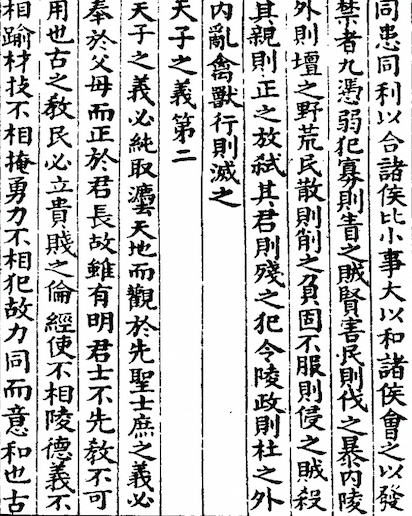 同患同利以合諸侯比小事大以和諸侯會之以發
禁者九憑弱犯寡則眚之賊賢害民則伐之暴內陵
外則壇之野荒民散則削之負固不服則侵之賊殺
其親則正之放弒其君則殘之犯令陵政則杜之外
內亂禽獸行則滅之
天子之義第二
天子之義必純取灋天地而觀於先聖士庶之義必
奉於父母而正於君長故雖有明君士不先教不可
用也古之教民必立貴賤之倫經使不相陵德義不
相踰材技不相掩勇力不相犯故力同而意和也古